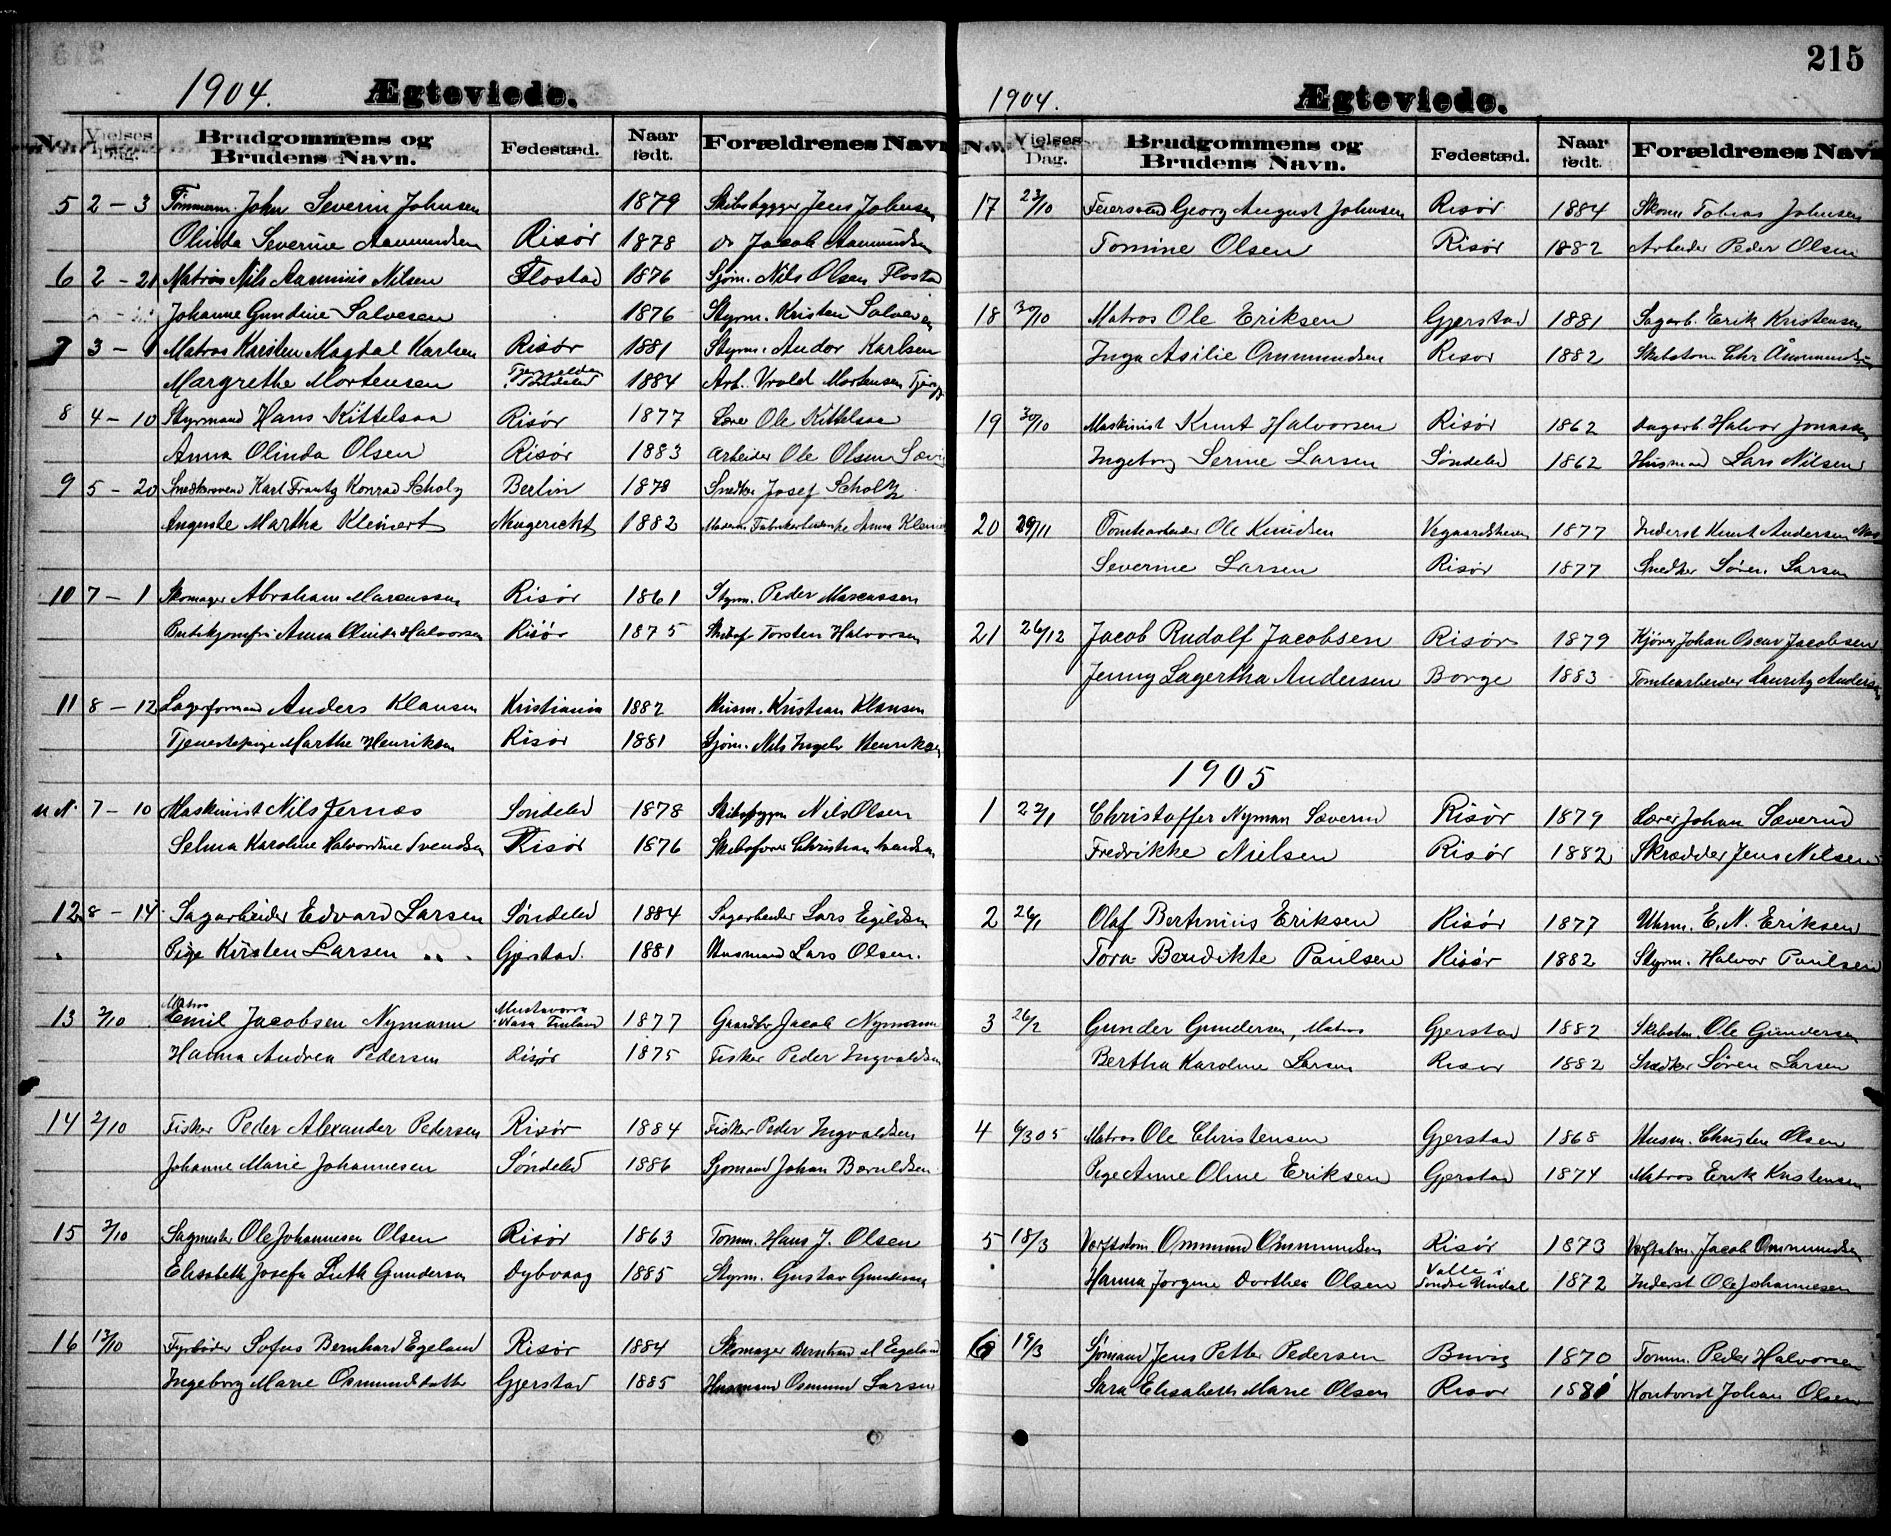 1904. Ægteviede.
No. Vielses Dag. Brudgommens og Brudens Navn. Fødested. Naar født. Forældrenes Navn
5 2 - 3 Tømmerm. John Severin Johnsen 1879 Skibsbygger Jens Johnsen
Olinda Severine Aamundsen Risör 1878 do Jacob Aamundsen
6 2 - 21 Matros Nils Nilsen Flostad 1876 Sjøm. Nils Olsen Flostad
Johanne Gundine Salvesen 1876 Styrm. Kristen Salvesen
7 3 - 1 Matros Karsten Magdal Karlsen Risör 1881 Styrm. Andor Karlsen
Margrethe Mortensen Søndeled 1884 Arb. Vrold Mortensen
8 4 - 10 Styrmand Hans Kittelsaa Risör 1877 Ole Kittelsaa
Anna Olinda Olsen Risör 1883 Arbeider Ole Olsen
9 5 - 20 Snedkersvend Karl Frantz Konrad Scholz Berlin 1878 Snedker Josef Scholtz
Auguste Martha Kleinert Neugericht 1882 Anna
10 7 - 1 Skomager Abraham Marcussen Risör 1861 Styrm. Peder Marcussen
Anna Olinda Halvorsen Risör 1875 Torsten Halvorsen
11 8 - 12 Lagerformand Anders Klausen Kristiania 1882 Husm. Kristian Klausen
Tjenestepige Marthe Henriksen Risör 1881 Sjøm. Nils Henriksen
u N. 7 - 10 Maskinist Nils Jernæs Søndeled 1878 Nils Olsen
Selma Karoline Halvordine Svendsen Risör 1876 Skibsfører Christian Svendsen
12 8 - 14 Sagarbeider Edvard Larsen Søndeled 1884 Sagarbeider Lars
Pige Kirsten Larsen Gjerstad. 1881 Husmand Lars Olsen.
Matros
13 2/10 Emil Jacobsen Nymann Wasa Finland 1877 Gaardbr Jacob Nymann
Hanna Andrea Pedersen Risør 1875 Fisker Peder Ingvaldsen
14 2/10 Fisker Peder Alexander Pedersen Risör 1884 Fisker Peder Ingvaldsen
Johanne Marie Johannesen Søndeled 1886 Sjømand Johan
15 2/10 Sagmester Ole Johannesen Olsen Risör 1863 Tømm. Hans J. Olsen
Elisabeth Josefa Ruth Gundersen Dybvaag 1885 Styrm. Gustav Gundersen
16 13/10 Fyrbøder Sofus Bernhard Egeland Risör 1884 Skomager Bernhard Egeland
Ingeborg Marie Osmundsdatter Gjerstad 1885 Husmand Osmund Larsen
215
1904. Ægteviede.
No. Vielses Dag. Brudgommens og Brudens Navn. Fødested. Naar født. Forældrenes Navn
17 23/10 Feiersvend Georg August Johnsen Risör 1884 Skom Tobias Johnsen
Tomine Olsen Risör 1882 Arbeider Peder Olsen
18 30/10 Matros Ole Eriksen Gjerstad 1881 Sagarb. Erik Kristensen
Inga Asilie Ommundsen Risør 1882 Skibstøm Chr Ommundsen
19 30/10 Maskinist Knut Halvorsen Risör 1862 Sagarb Halvor Jonassen
Ingeborg Serine Larsen Søndeled 1862 Husmand Lars Nilsen
20 29/11 Tomtearbeider Ole Knudsen Vegaardsheien 1877 Inderst Knut Andersen
Severine Larsen Risör 1877 Snedker Søren Larsen
21 26/12 Jacob Rudolf Jacobsen Risör 1879 Kjører Johan Oscar Jacobsen
Jenny Lagertha Andersen Borge 1883 Tomtearbeider Lauritz Andersen
1905
1 22/1 Christoffer Nyman Sæverud Risör 1879 Johan Sæverud
Fredrikke Nielsen Risör 1882 Skrædder Jens Nilsen
2 26/1 Olaf Bertinius Eriksen Risör 1877 Uhrm. E. N. Eriksen
Tora Bendikte Paulsen Risör 1882 Styrm. Halvor Paulsen
3 26/2 Gunder Gundersen, Matros Gjerstad 1882 Skibstm. Ole Gundersen
Bertha Karoline Larsen Risør 1882 Snedker Søren Larsen
4 6/3 05 Matros Ole Christensen Gjerstad 1868 Husm. Christen Olsen
Pige Anne Oline Eriksen Gjerstad 1874 Matros Erik Kristensen
5 18/3 Værftstøm Ommund Ommundsen Risör 1873 Værftstm. Jacob Ommundsen
Hanna Jørgine Dorthea Olsen Valle i Søndre Undal 1872 Inderst Ole Johannesen
6 19/3 Sjømand Jens Petter Pedersen 1870 Tømm. Peder Halvorsen
Sara Elisabeth Marie Olsen Risør 1881 Kontorist Johan Olsen